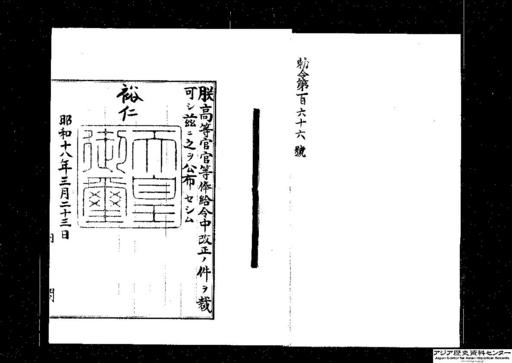 勅令第百六十六號
朕高等官官等俸給令中改正ノ件ヲ裁
可シ茲ニ之ヲ公布セシム
裕仁
天皇
御璽
昭和十八年三月二十三日
内閣
アジア歴史資料センター
Japan Center for Asian Historical Records